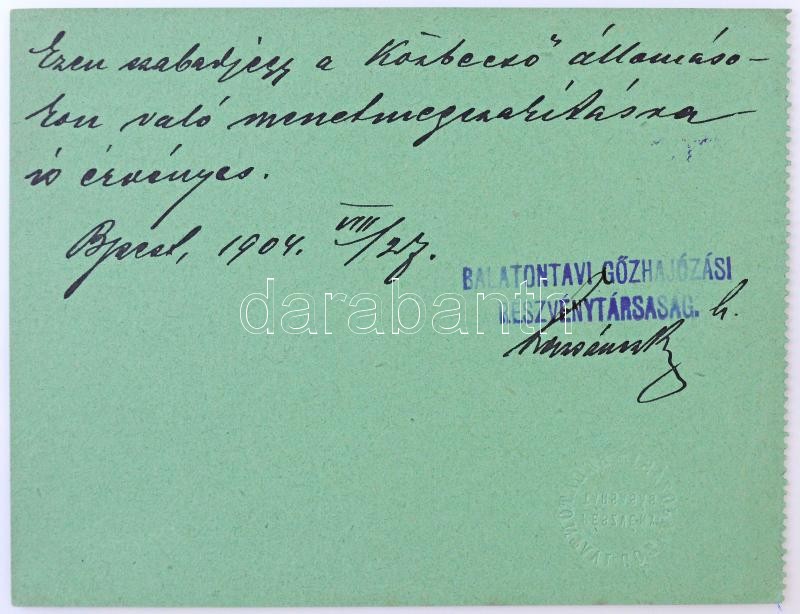 Ezen szabadjegy a „Közbeeső“ állomáso-
kon való menetmegszakításra
is érvényes.
Bpest, 1904. VIII/27.
BALATONTAVI GŐZHAJÓZÁSI
RÉSZVÉNYTÁRSASÁG.
darabanth